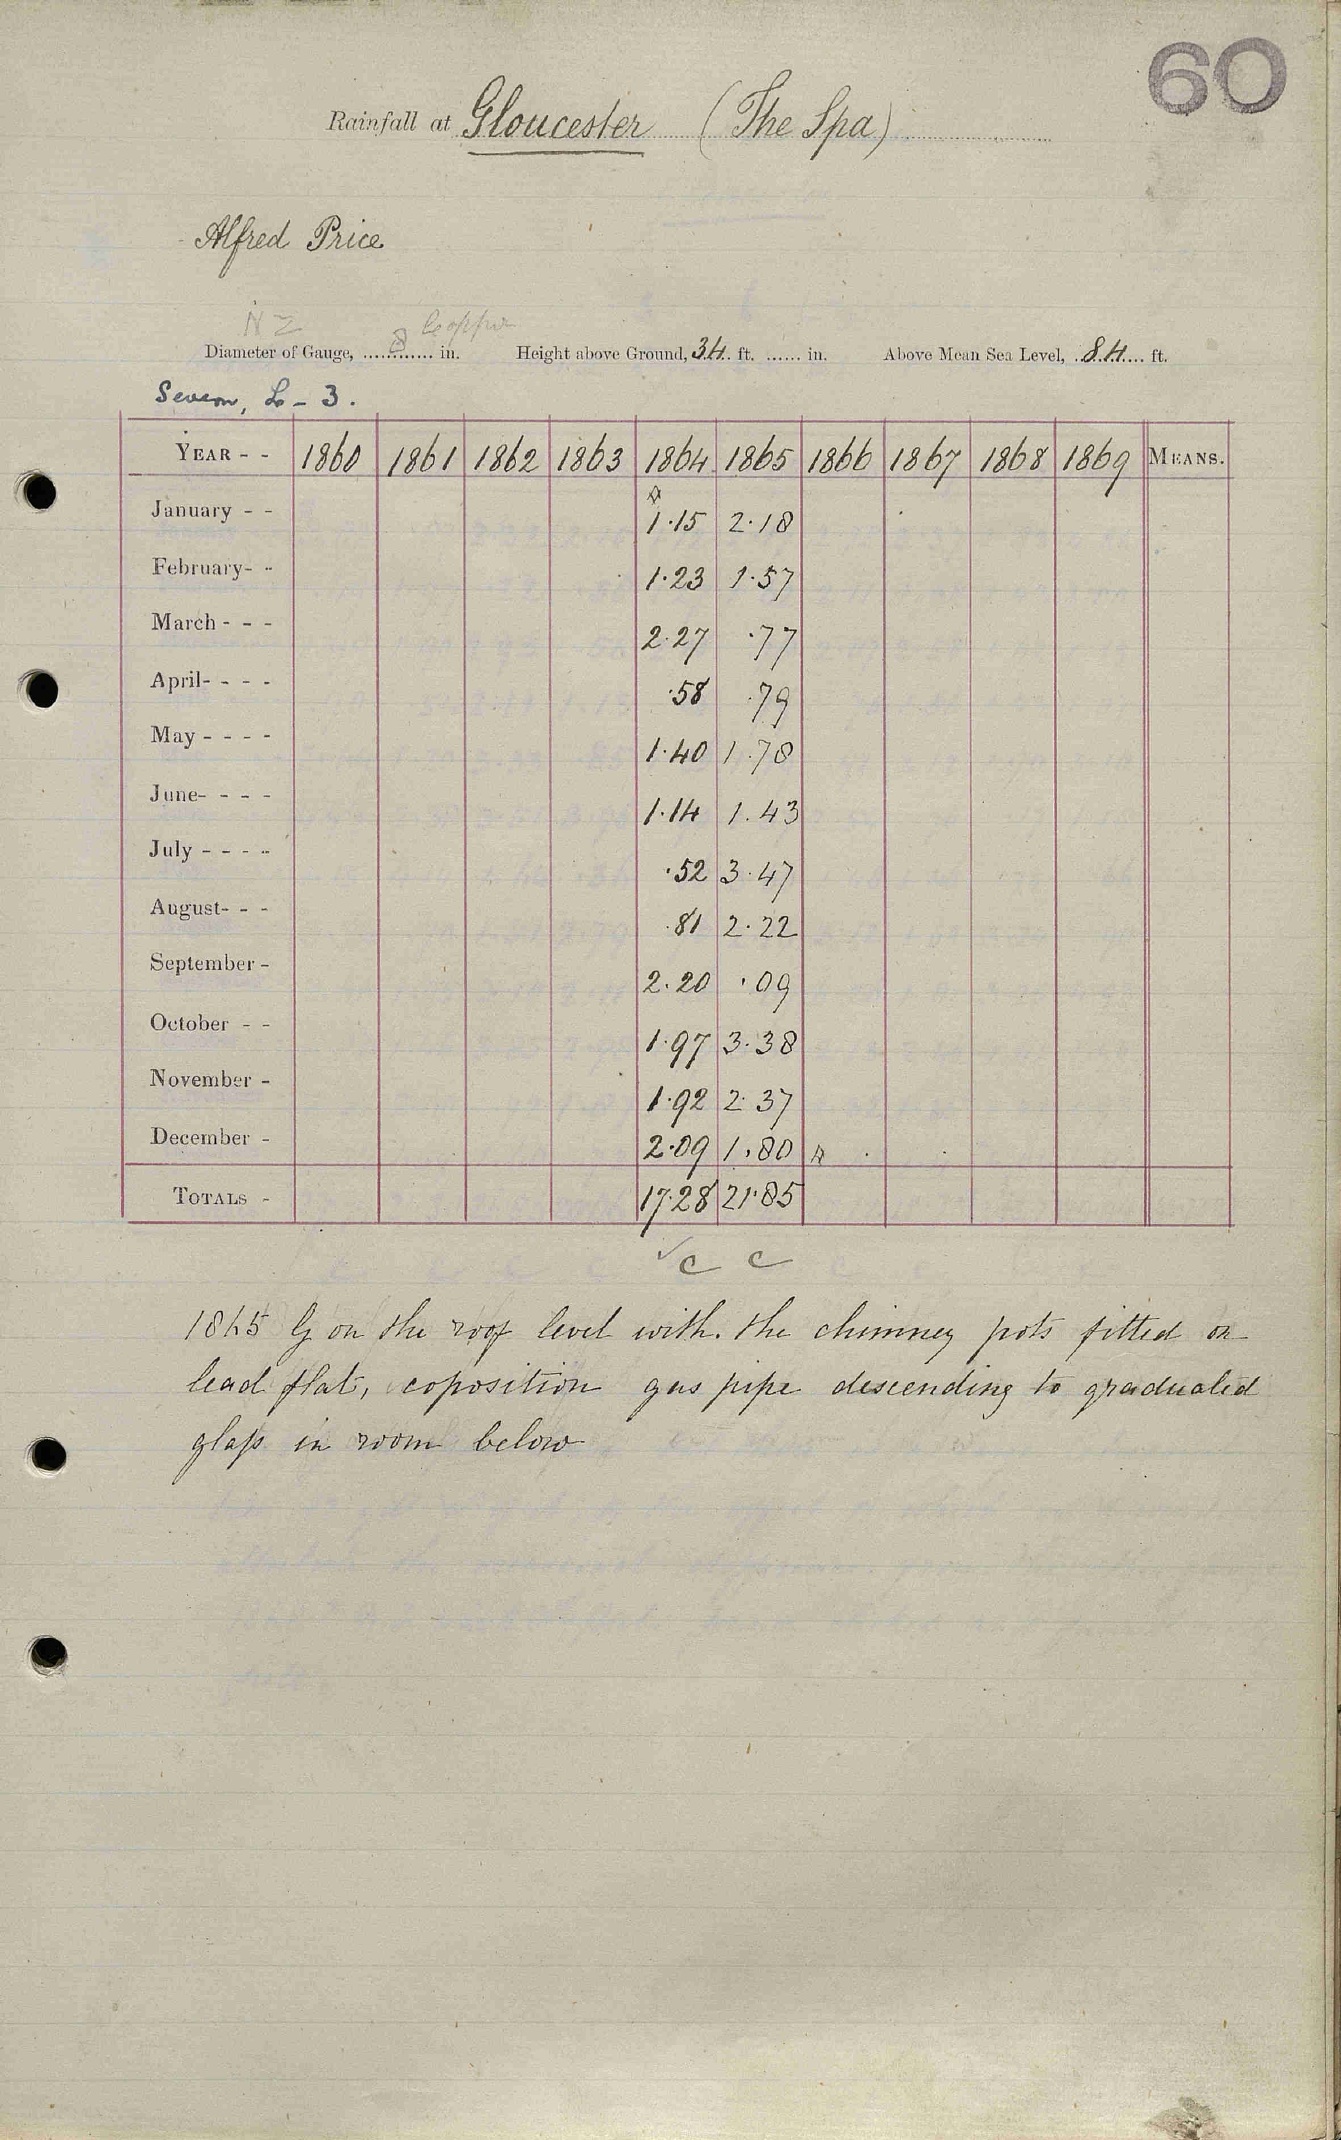 60
Rainfall at Gloucester (The Spa)
Alfred Price
NZ 8 Copper
Diameter of Gauge, ............ in. Height above Ground, 34 ft. ...... in. Above Mean Sea Level, 84 ft.
Severn, L - 3.
YEAR - - 1860 1861 1862 1863 1864 1865 1866 1867 1868 1869 MEANS.
January - - 1.15 2.18
February- - 1.23 1.57
March - - - 2.27 .77
April- - - - .58 .79
May - - - - 1.40 1.78
June- - - - 1.14 1.43
July - - - - .52 3.47
August- - - .81 2.22
September - 2.20 .09
October - - 1.97 3.38
November - 1.92 2.37
December - 2.09 1.80
TOTALS - 17.28 21.85
✓ c c
1865 G on the roof level with the chimney pots fitted on
lead flat, coposition gas pipe descending to graduated
glass in room below